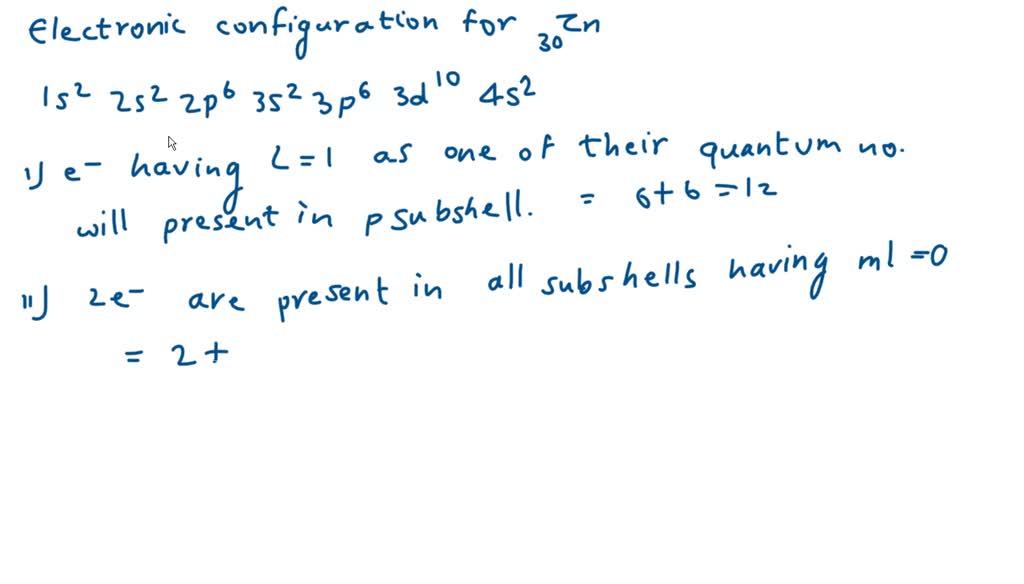 Electronic configuration for ₃₀Zn
1s² 2s² 2p⁶ 3s² 3p⁶ 3d¹⁰ 4s²
i) e⁻ having l=1 as one of their quantum no.
will present in p subshell. = 6+6=12
ii) 2e⁻ are present in all subshells having ml=0
= 2+